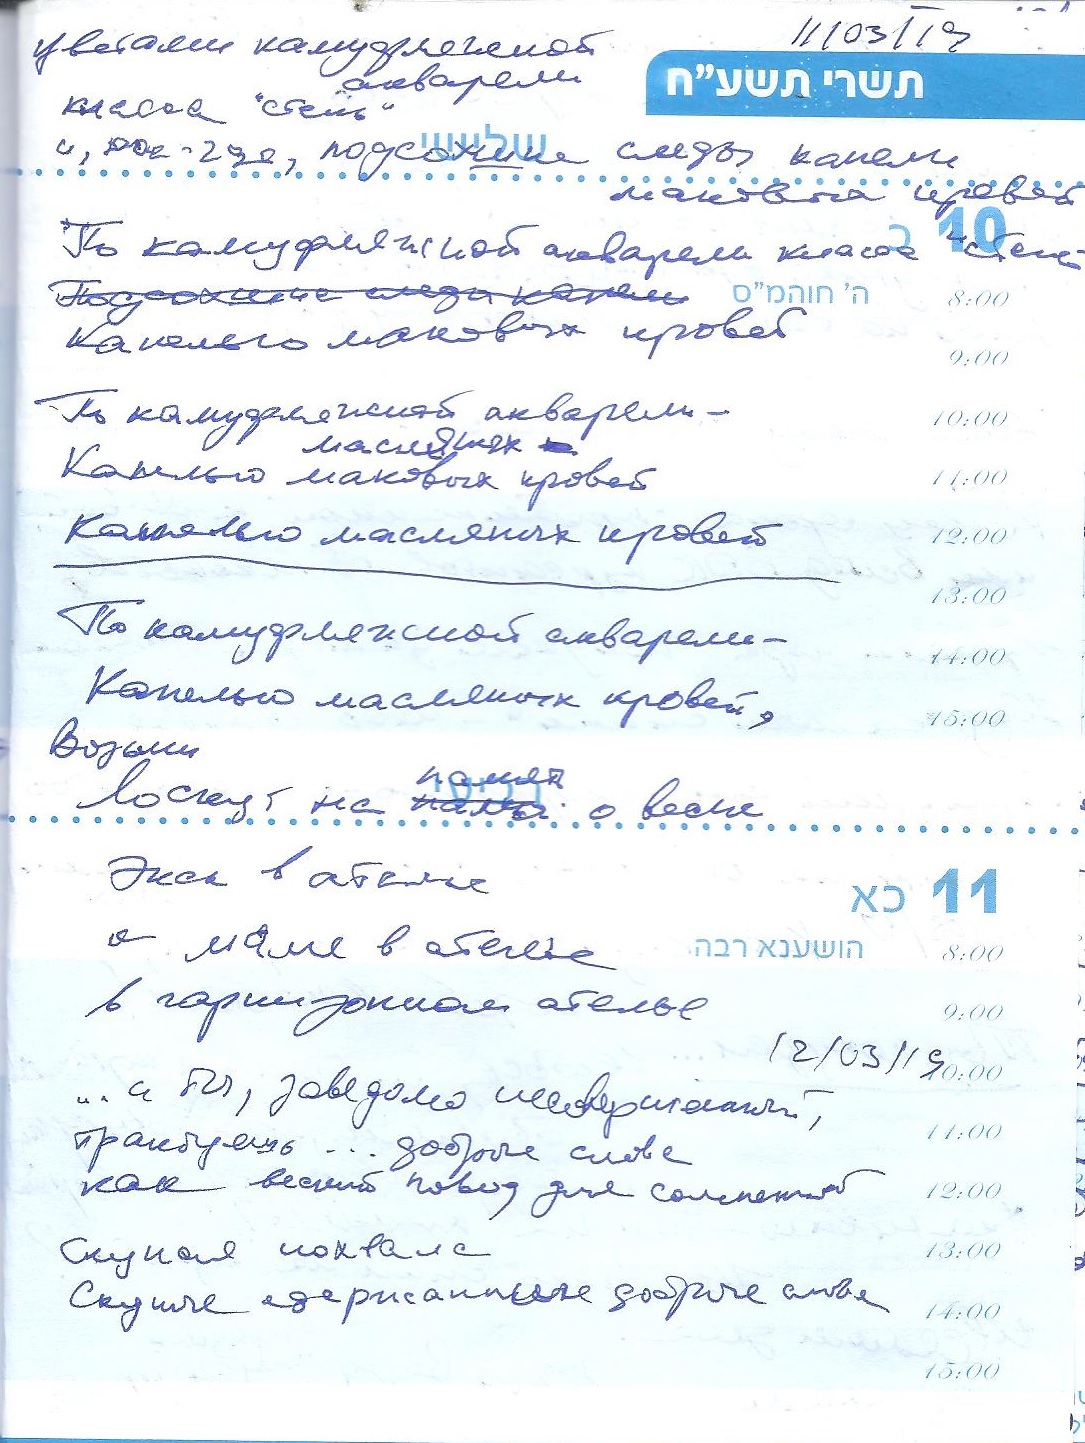 11/03/19
цветами камуфляжной
акварели
класса "степь"
תשרי תשע"ח
שלישי
и, кое-где, подсохшие следы капели
маковых кровей
10 כ
По камуфляжной акварели класса "степь"
Подсохшие следы капели
ה' חוהמ"ס
8:00
Капелью маковых кровей
9:00
По камуфляжной акварели –
10:00
масляных
Капелью маковых кровей
11:00
Капелью масляных кровей
12:00
13:00
По камуфляжной акварели –
14:00
Капелью масляных кровей,
15:00
Возьми
память
Лоскут на о весне
רביעי
11 כא
Экск в ателье
к маме в ателье
הושענא רבה
8:00
в гарнизонном ателье
9:00
12/03/19
10:00
...и ты, заведомо несовершенный,
11:00
трактуешь ... доброе слово
как веский повод для сомнений
12:00
Скупая похвала
13:00
Скупые сдержанные добрые слова
14:00
15:00